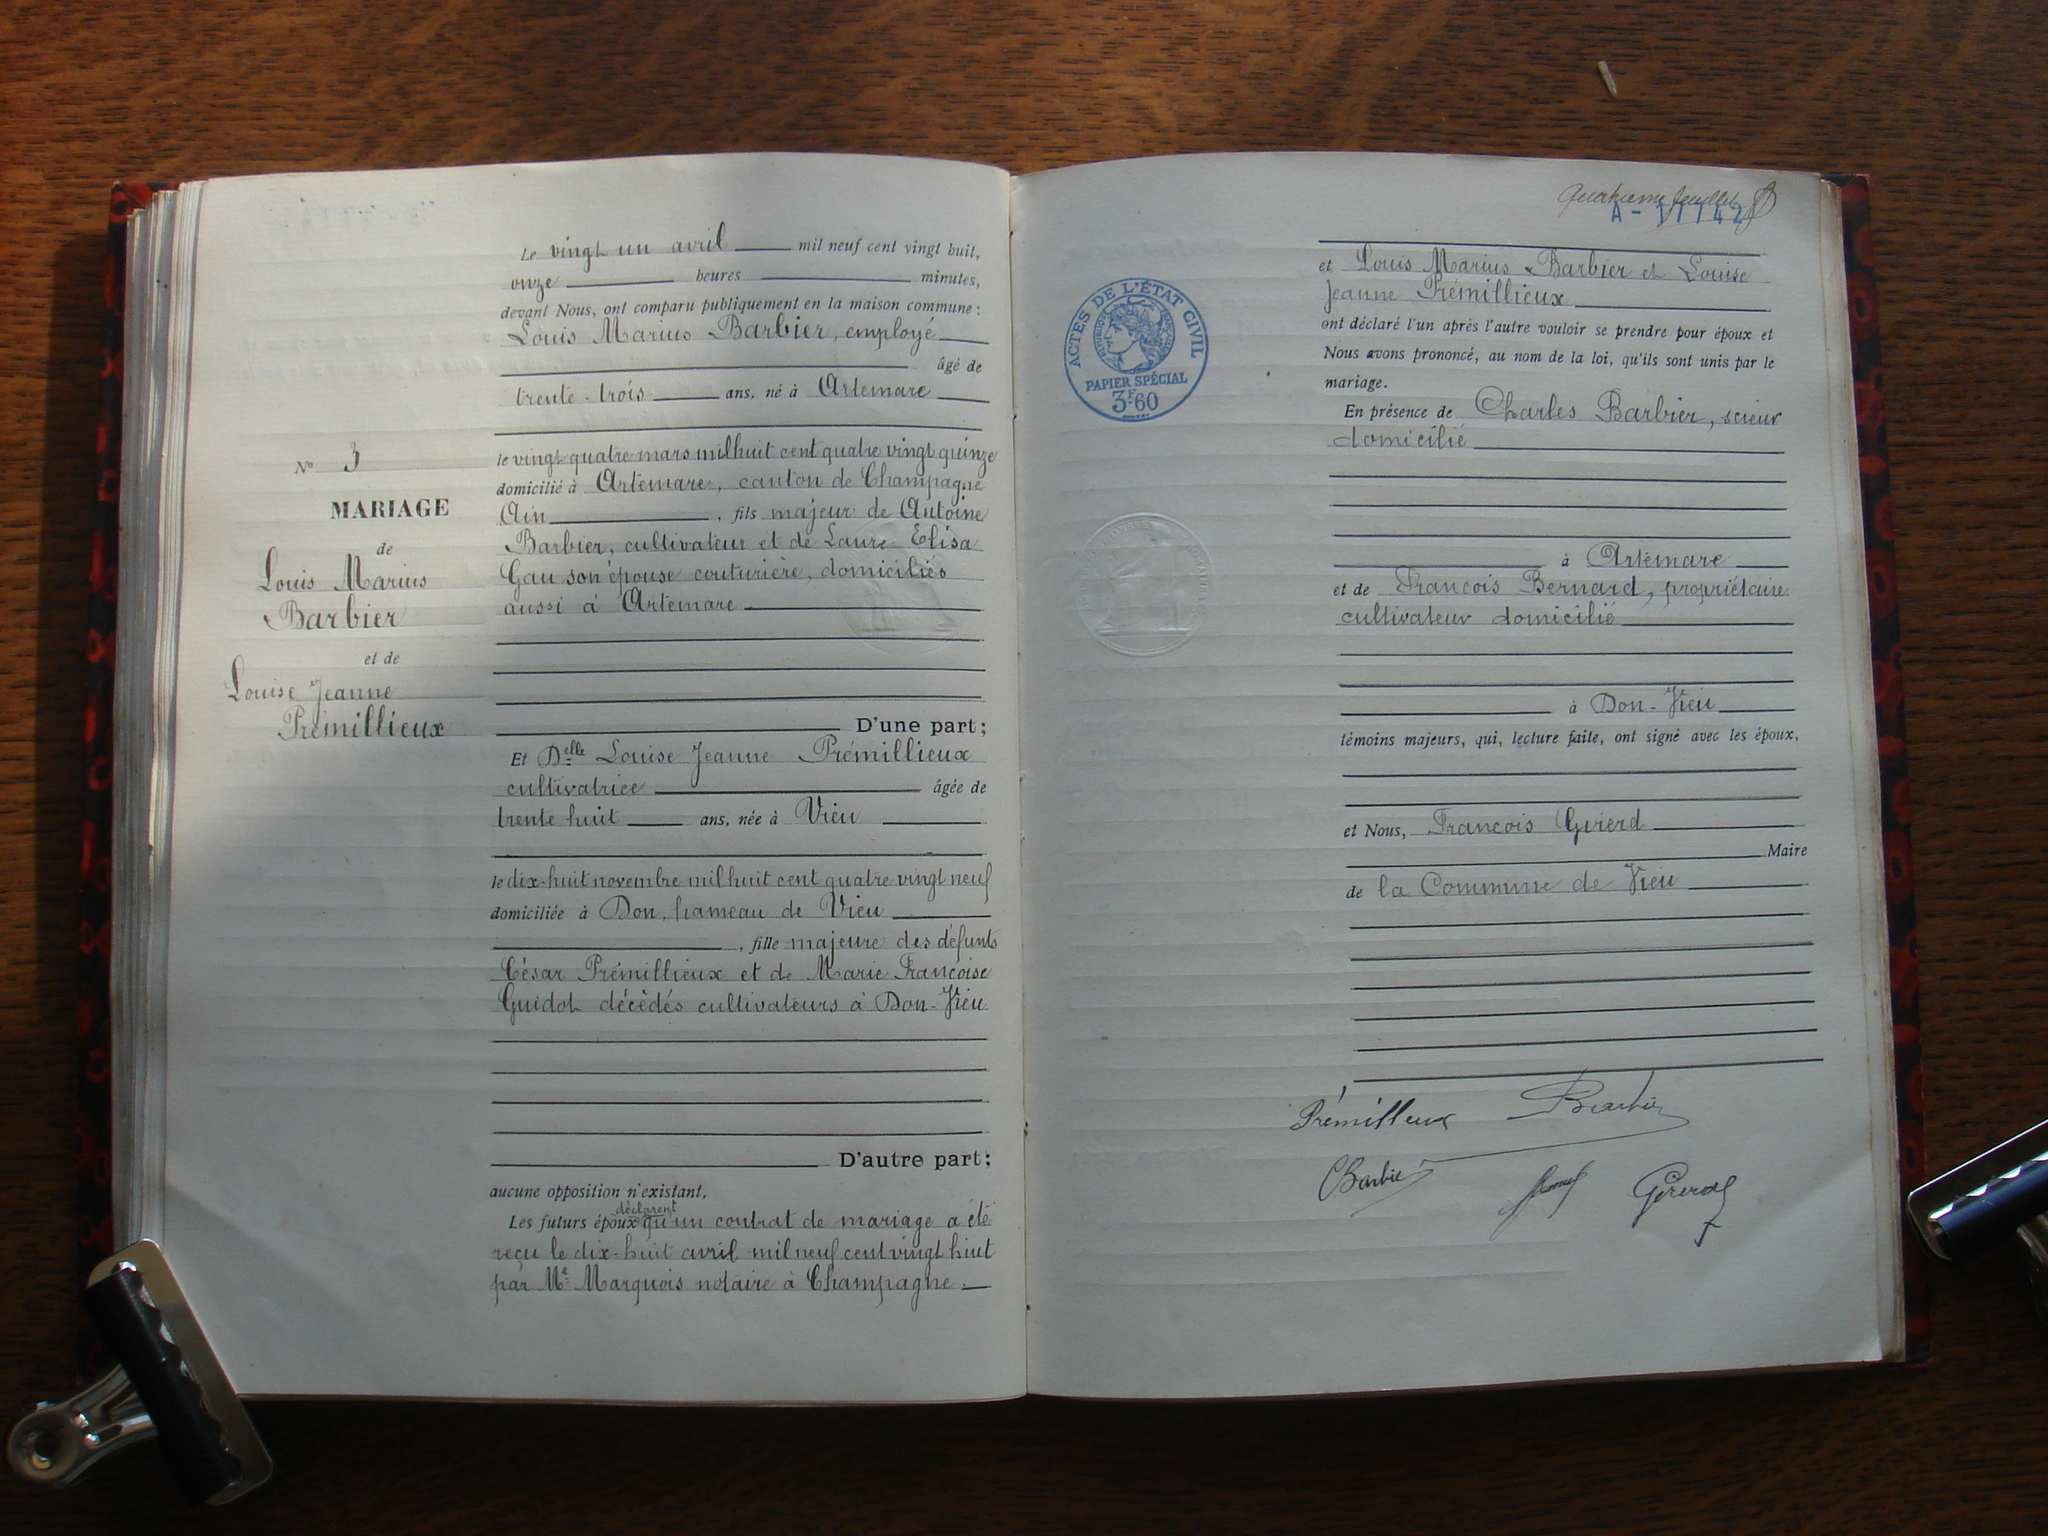 Le vingt un avril mil neuf cent vingt huit,
onze heures minutes,
devant Nous, ont comparu publiquement en la maison commune :
Louis Marius Barbier, employé
âgé de
trente-trois ans, né à Artemare
le vingt quatre mars mil huit cent quatre vingt quinze
domicilié à Artemare, canton de Champagne
Ain, fils majeur de Antoine
Barbier, cultivateur et de Laure Elisa
Gau son épouse couturière, domiciliés
aussi à Artemare
D'une part;
Et Delle Louise Jeanne Prémillieux
cultivatrice âgée de
trente huit ans, née à Vieu
le dix-huit novembre mil huit cent quatre vingt neuf
domiciliée à Don, hameau de Vieu
, fille majeure des défunts
César Prémillieux et de Marie Francoise
Guidot décédés cultivateurs à Don-Vieu
D'autre part;
aucune opposition n'existant,
déclarent
Les futurs époux qu'un contrat de mariage a été
reçu le dix-huit avril mil neuf cent vingt huit
par Me Marquois notaire à Champagne.
No 3
MARIAGE
de
Louis Marius
Barbier
et de
Louise Jeanne
Prémillieux
Quatrième feuillet
ACTES DE L'ÉTAT CIVIL
PAPIER SPÉCIAL
3F60
et Louis Marius Barbier et Louise
Jeanne Prémillieux
ont déclaré l'un après l'autre vouloir se prendre pour époux et
Nous avons prononcé, au nom de la loi, qu'ils sont unis par le
mariage.
En présence de Charles Barbier, scieur
domicilié
à Artemare
et de Francois Bernard, propriétaire
cultivateur domicilié
à Don-Vieu
témoins majeurs, qui, lecture faite, ont signé avec les époux,
et Nous, Francois Gvierd
Maire
de la Commune de Vieu
Prémillieux Barbier
CBarbier